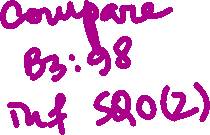 compare
B3:98
inf SQO(2)